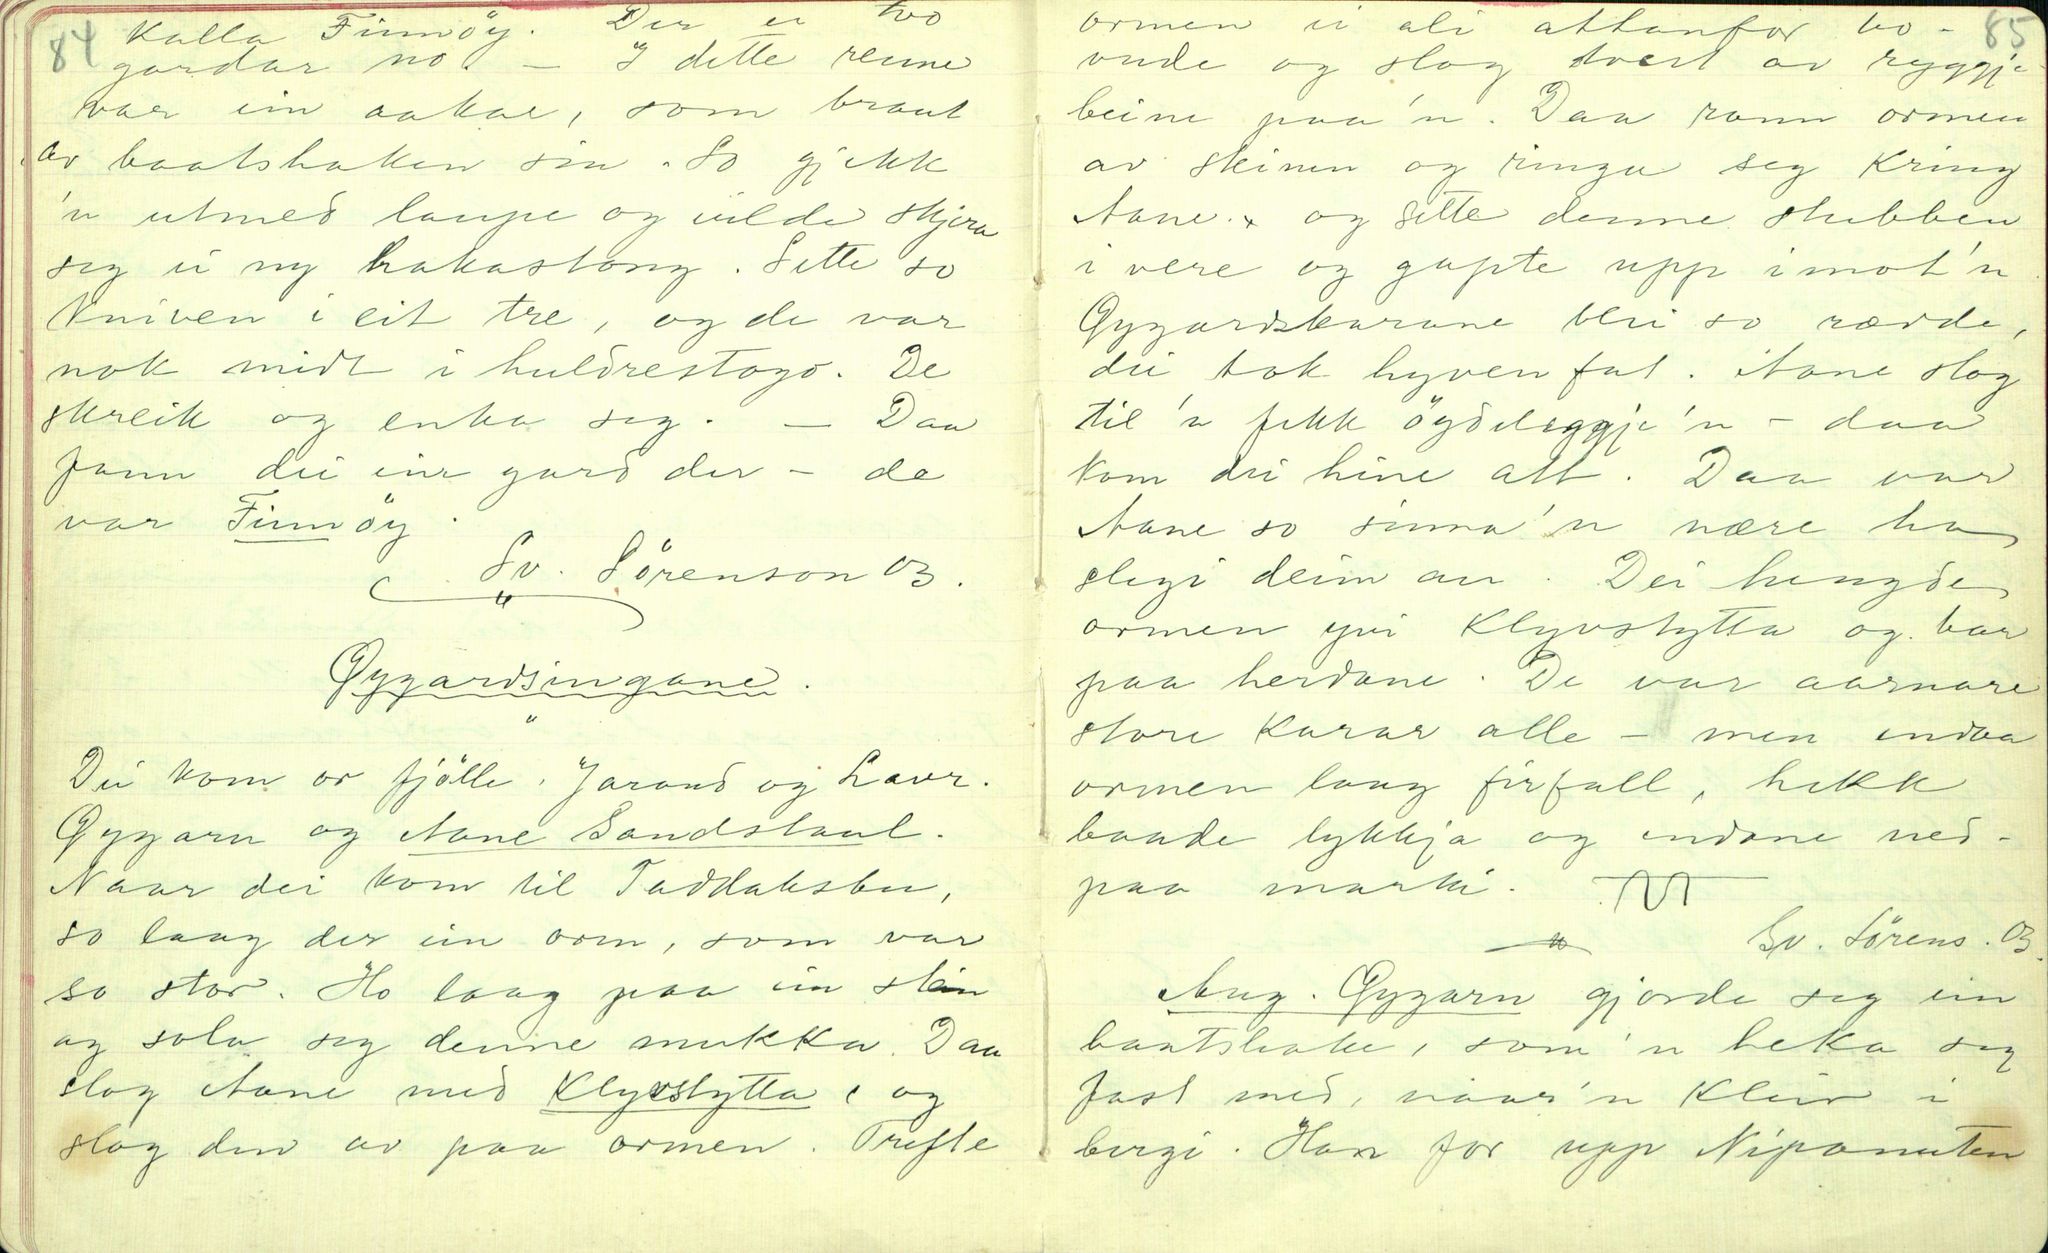 84
kalla Finnöy. Der er tvo
gardar no. — I dette reine
var ein aakal, som braut
av baatshaken sin. So gjekk
'n utmed laupe og vilde skjera
seg ei ny hakastong. Sette so
kniven i eit tre, og de var
nok midt i huldrestogo. De
skreik og enka seg. — Daa
fann dei ein gard der – de
var Finnöy.
Sv. Sörenson Oz.
Gygardsingane.
Dei kom or fjölle. Jarand og Lavr.
Gygarn og Aane Sandstaul.
Naar dei kom til Taddaksbu,
so laag der ein orm, som var
so stor. Ho laag paa ein stein
og sola seg denne mukka. Daa
slog Aane med Klyvstytta, og
slog den av paa ormen. Trefte
85
ormen ei ali attanfor ho-
vude og slog tvert av ryggje-
beine paa'n. Daa rann ormen
av steinen og ringa seg kring
Aane. og sette denne stubben
i vere og gapte upp imot'n.
Gygardskarane blei so rædde,
dei tok kyven fat. Aane slog
til'n fekk öydeleggje'n – daa
kom dei hine att. Daa var
Aane so sinna'n nære ha
slegi deim au. Dei hengde
ormen yvi Klyvstytta og bar
paa herdane. De var aarnare
store karar alle – men endaa
ormen laag firfall, hekk
baade lykkja og endane ned-
paa marki.
Sv. Sörens. Oz.
Aug. Gygarn gjorde seg ein
baatshake, som'n heka seg
fast med, naar'n kleiv i
bergi. Han for upp Nipanuten